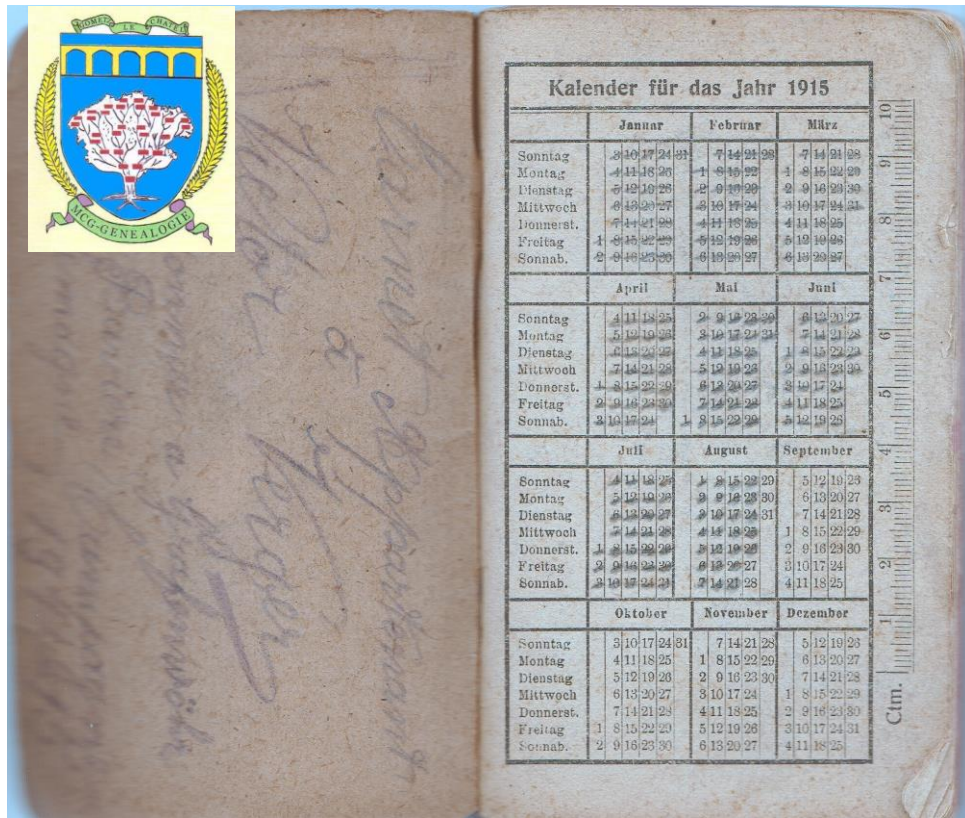 LE CHATEL
MCG-GENEALOGIE
Carnet Appartenant
à
Victor Verger
Kalender für das Jahr 1915
Januar Februar März
Sonntag 3 10 17 24 31 7 14 21 28 7 14 21 28
Montag 4 11 18 25 1 8 15 22 1 8 15 22 29
Dienstag 5 12 19 26 2 9 16 23 2 9 16 23 30
Mittwoch 6 13 20 27 3 10 17 24 3 10 17 24 31
Donnerst. 7 14 21 28 4 11 18 25 4 11 18 25
Freitag 1 8 15 22 29 5 12 19 26 5 12 19 26
Sonnab. 2 9 16 23 30 6 13 20 27 6 13 20 27
April Mai Juni
Sonntag 4 11 18 25 2 9 16 23 30 6 13 20 27
Montag 5 12 19 26 3 10 17 24 31 7 14 21 28
Dienstag 6 13 20 27 4 11 18 25 1 8 15 22 29
Mittwoch 7 14 21 28 5 12 19 26 2 9 16 23 30
Donnerst. 1 8 15 22 29 6 13 20 27 3 10 17 24
Freitag 2 9 16 23 30 7 14 21 28 4 11 18 25
Sonnab. 3 10 17 24 1 8 15 22 29 5 12 19 26
Juli August September
Sonntag 4 11 18 25 1 8 15 22 29 5 12 19 26
Montag 5 12 19 26 2 9 16 23 30 6 13 20 27
Dienstag 6 13 20 27 3 10 17 24 31 7 14 21 28
Mittwoch 7 14 21 28 4 11 18 25 1 8 15 22 29
Donnerst. 1 8 15 22 29 5 12 19 26 2 9 16 23 30
Freitag 2 9 16 23 30 6 13 20 27 3 10 17 24
Sonnab. 3 10 17 24 31 7 14 21 28 4 11 18 25
Oktober November Dezember
Sonntag 3 10 17 24 31 7 14 21 28 5 12 19 26
Montag 4 11 18 25 1 8 15 22 29 6 13 20 27
Dienstag 5 12 19 26 2 9 16 23 30 7 14 21 28
Mittwoch 6 13 20 27 3 10 17 24 1 8 15 22 29
Donnerst. 7 14 21 28 4 11 18 25 2 9 16 23 30
Freitag 1 8 15 22 29 5 12 19 26 3 10 17 24 31
Sonnab. 2 9 16 23 30 6 13 20 27 4 11 18 25
Ctm. 1 2 3 4 5 6 7 8 9 10